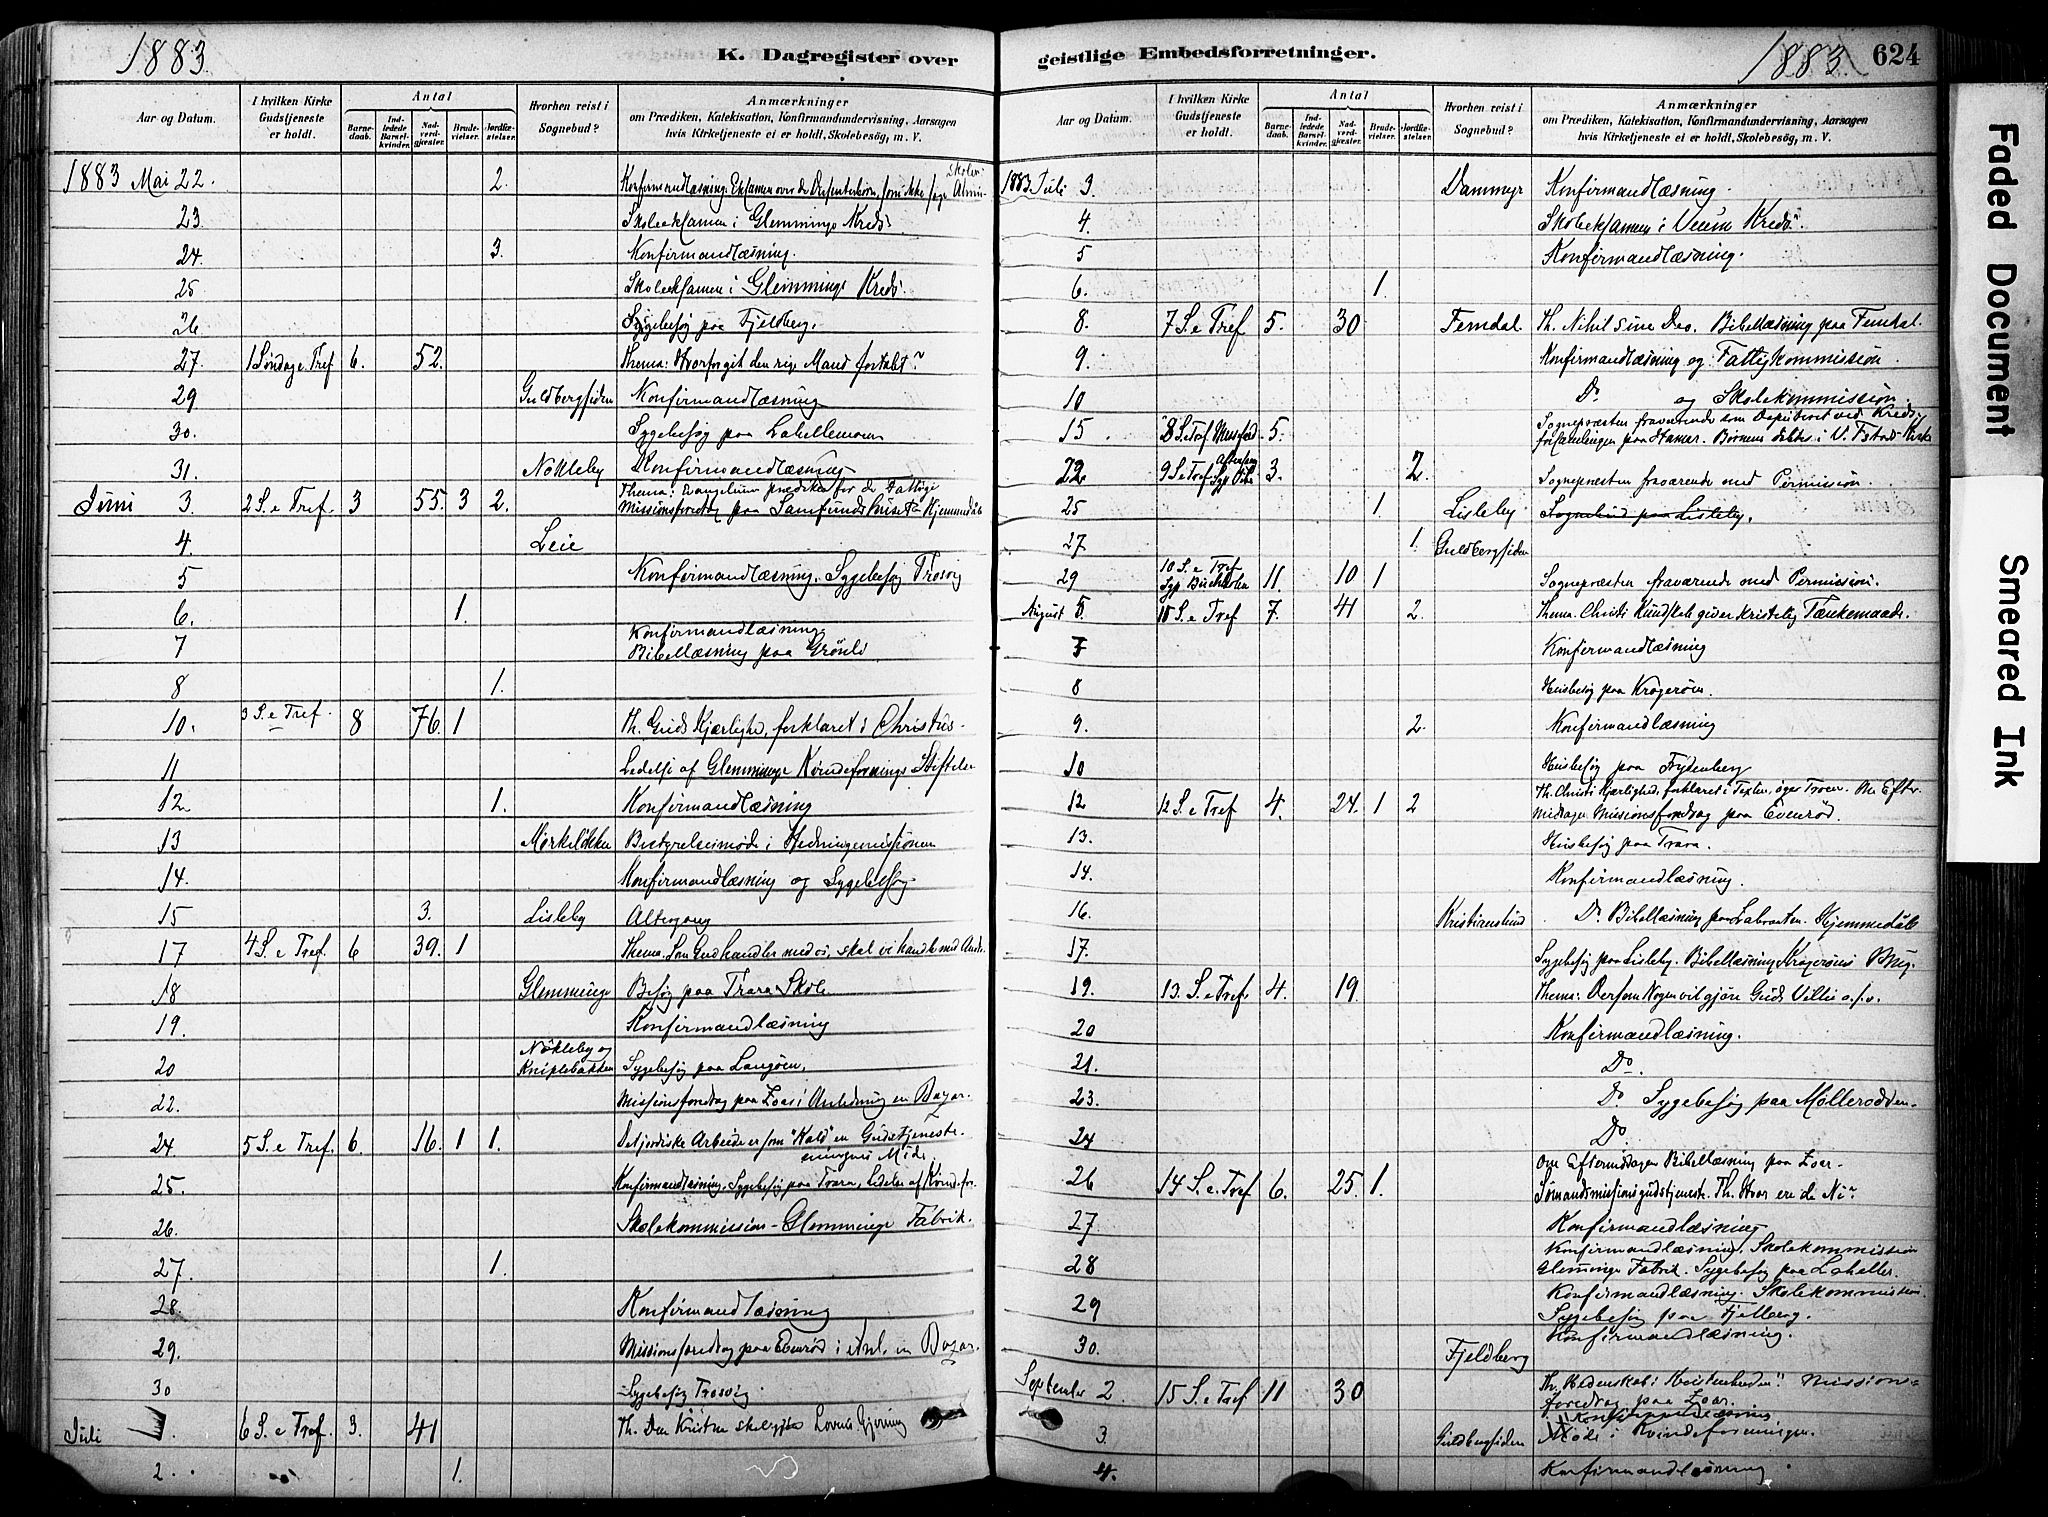 1883.
K. Dagregister over
Aar og Datum.
I hvilken Kirke Gudstjeneste er holdt.
Antal
Barnedaab.
Indledede Barselkvinder.
Nadverdgjæster.
Brudevielser.
Jordfæstelser.
Hvorhen reist i Sognebud?
Anmærkninger
om Prædiken, Katekisation, Konfirmandundervisning, Aarsagen
hvis Kirketjeneste ei er holdt, Skolebesøg, m. V.
1883 Mai 22. 2. Konfirmandlæsning. Eksamen over de Dissenterbörn, som ikke söge Almu- Skolen
23. Skoleeksamen i Glemminge Kreds.
24. 3. Konfirmandlæsning.
25 Skoleeksamen i Glemminge Kreds.
26 Sygebesøg paa Fjeldberg.
27. 1 Söndag e. Tref 6. 52. Thema: Hvorfor git den rige Mand fortabt?
29 Guldbergsiden Konfirmandlæsning
30. Sygebesøg paa Lahellemoen
31. Nökleby Konfirmandlæsning
Juni 3. 2 S. e Tref. 3 55. 3 2. Thema: Evangelium prædikes for de Fattige
Missionsforedrag paa Samfundshuset Kjemmedal
4. Leie
5 Konfirmandlæsning. Sygebesøg Trosvig
6. 1.
7 Konfirmandlæsning.
Bibellæsning paa Grönli.
8 1.
10. 3 S. e Tref. 8 76. 1 Th. Guds Kjærlighe, forklaret i Christus.
11 Ledelse af Glemminge Kvindeforenings Stiftelse
12 1. Konfirmandlæsning
13 Mørkeløkken Bestyrelsesmøde i Hedningemissionen
14. Konfirmandlæsning og Sygebesøg
15 3. Lisleby Altergang
17 4 S. e Tref. 6 39. 1 Thema. Som Gud handler med os, skal vi handle med Andr.
18 Glemminge Besøg paa Trara Skole
19. Konfirmandlæsning
20 Nökleby og Kniplebakken Sygebesøg paa Langøen.
22. Missionsforedrag paa Zoar i Anledning en Bazar.
24 5 S. e Tref. 6 16. 1 1. Det jordiske Arbeide er som "Kald" en Gudstjeneste.
25. Konfirmandlæsning, Sygebesøg paa Trara, Ledelse af Kvindefor- eningens Möde.
26. Skolekommission - Glemminge Fabrik.
27. 1.
28. Konfirmandlæsning
29. Missionsforedrag paa Evenrød i Anl. en Bazar.
30 Sygebesøg Trosvig.
Juli 1. 6 S. e Tref. 3. 41 Th. Den Kristne skal Lovens Gjerning
2. 1.
geistlige Embedsforretninger.
1883. 624
Aar og Datum.
I hvilken Kirke Gudstjeneste er holdt.
Antal
Barnedaab.
Indledede Barselkvinder.
Nadverdgjæster.
Brudevielser.
Jordfæstelser.
Hvorhen reist i Sognebud?
Anmærkninger
om Prædiken, Katekisation, Konfirmandundervisning, Aarsagen
hvis Kirketjeneste ei er holdt, Skolebesög, m. V.
1883 Juli 3. Dammyr Konfirmandlæsning.
4. Skoleeksamen i Veum Kreds.
5 Konfirmandlæsning.
6. 1
8. 7 S. e Tref 5. 30 Femdal. Th. Nihil sine Deo. Bibellæsning paa Femdal.
9. Konfirmandlæsning og Fattigkommission
10 Do og Skolekommission.
15. 8 S. e Tref. 5. Sognepræsten fraværende som Deputeret ved Kreds-
forsamlingen paa Hamar. Börnene döbte i V. Fstad Kirke
22 9 S. e Tref 3. 2. Sognepresten fraværende med Permission.
25 1 Lisleby Sognebud paa Lisleby.
27 1. Guldbergsiden
29 10 S. e Tref 11. 10 1 Sognepræsten fraværende med Permission.
August 5. S. e Tref 7. 41 2. Thema. Christi Kundskab giver kristelig Tænkemaade.
7 Konfirmandlæsning
8 Husbesøg paa Kragerøen.
9. 2. Konfirmandlæsning
10 Husbesøg paa Frydenberg
12 12 S. e Tref 4. 24. 1 2 Th. Christi Kjærlighed, forklaret i Texten, öger Troen. Om Efter-
middagen Missionsforedrag paa Evenrød.
13. Husbesøg paa Trara.
14. Konfirmandlæsning.
16. Kristianslund Do. Bibellæsning paa Labraaten. Hjemmedöbt
17. Sygebesøg paa Lisleby. Bibellæsning Kragerøens Brug.
19. 13. S. e Tref. 4. 19. Thema: Dersom Nogen vil gjöre Guds Villie o. s. v.
20 Konfirmandlæsning.
21. Do.
23. Do. Sygebesøg paa Mölleroddden.
24 Do.
26 14 S. e. Tref 6. 25. 1. Om Eftermiddagen Bibellæsning paa Zoar.
Sömandsmissionsgudstjeneste. Th. Hvor ere de Ni?
27 Konfirmandlæsning
28 Konfirmandlæsning. Skolekommission
Glemminge Fabrik. Sygebesøg paa Laheller.
29 Konfirmandlæsning. Skolekommission.
Sygebesøg paa Fjelberg.
30. Fjeldberg Konfirmandlæsning.
September 2. 15 S. e Tref 11 30 Th. Hedenskab i Kristenheden. Missions-
foredrag paa Zoar.
3. Guldbergsiden Konfirmandlæsning
Möde i Kvindeforeningen.
4. Konfirmandlæsning.
Faded Document
Smeared Ink